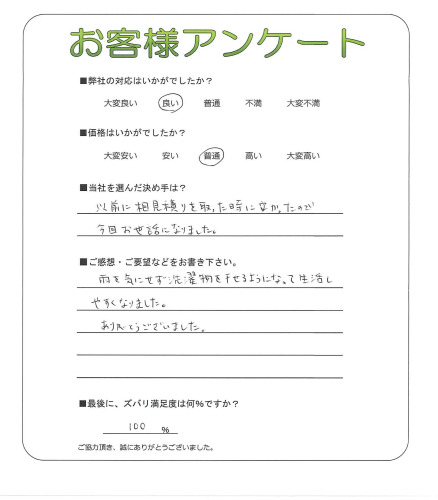 お客様アンケート
■弊社の対応はいかがでしたか？
大変良い 良い 普通 不満 大変不満
■価格はいかがでしたか？
大変安い 安い 普通 高い 大変高い
■当社を選んだ決め手は？
以前に相見積りを取った時に安かったので
今回お世話になりました。
■ご感想・ご要望などをお書き下さい。
雨を気にせず洗濯物を干せるようになって生活し
やすくなりました。
ありがとうございました。
■最後に、ズバリ満足度は何%ですか？
100 %
ご協力頂き、誠にありがとうございました。